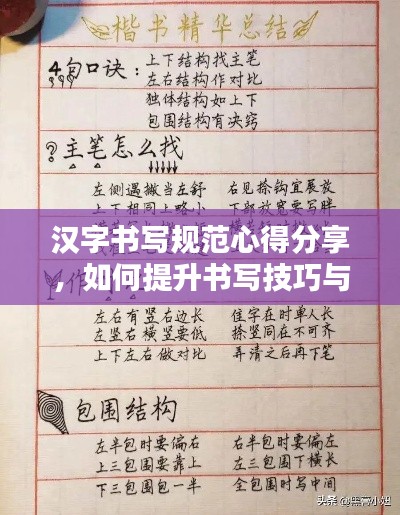 楷书精华总结
4句口诀：
上下结构找主笔
左右结构作对比
独体结构如上下
包围结构有决窍
主笔怎么找
左侧遇撇当左舒 右见捺钩宜展放
上下相同上略小 下部放宽要写胖
汉字书写规范心得分享
，如何提升书写技巧与
左右有竖右边长 佳字在时单人长
左竖右横竖要低 捺竖同在不可齐
上下左右做对比 弄清之后再下笔
包围结构
左半包时要偏右 右半包时要偏左
上三包围要靠上 左三包围下横长
下三包围包一半 全包围时写中间
头条@墨斋小旭